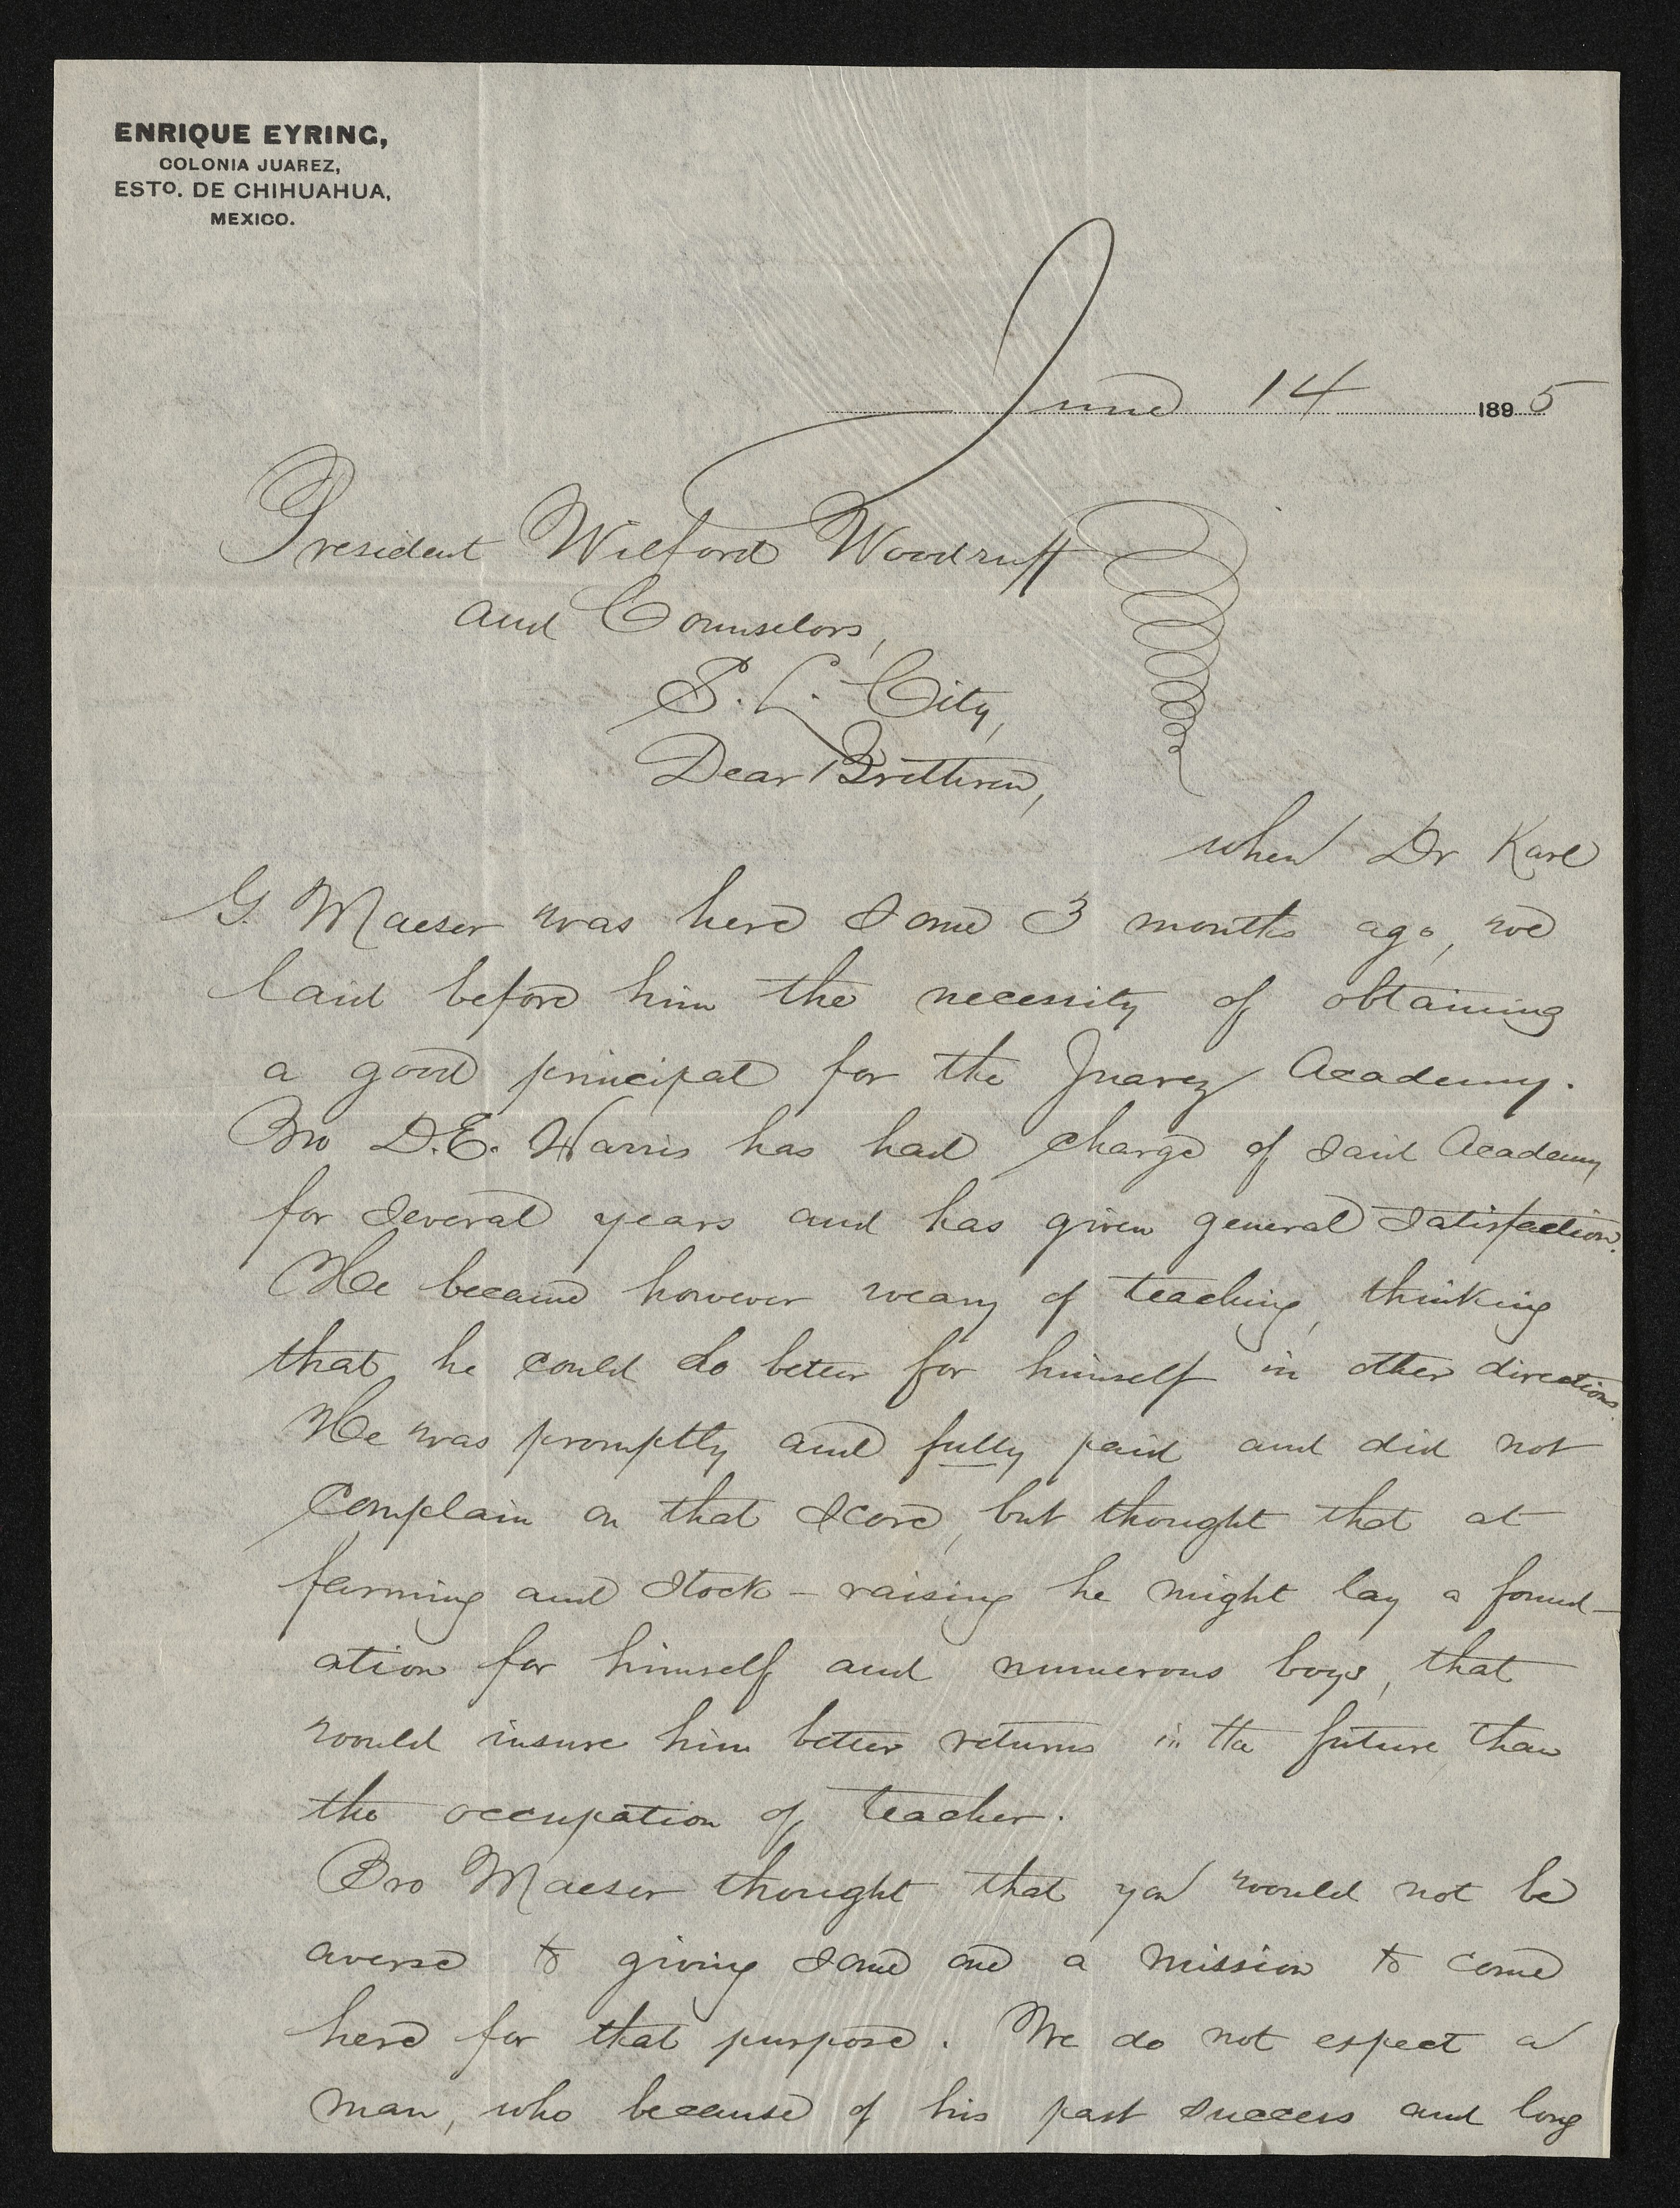 ENRIQUE EYRING,
COLONIA JUAREZ,
ESTO. DE CHIHUAHUA,
MEXICO.
June 14 1895
President Wilford Woodruff
and Counselors,
S. L. City,
Dear Brethren,
when Dr Karl
G. Maeser was here some 3 months ago, we
laid before him the necessity of obtaining
a good principal for the Juarez Academy.
Bro D.E. Harris has had charge of said Academy
for several years and has given general satisfaction.
He became however weary of teaching, thinking
that he could do better for himself in other directions.
He was promptly and fully paid and did not
complain on that score, but thought that at
farming and stock-raising he might lay a found-
ation for himself and numerous boys, that
would insure him better returns in the future, than
the occupation of teacher.
Bro Maeser thought that you would not be
averse to giving some one a mission to come
here for that purpose. We do not expect a
man, who because of his past success and long